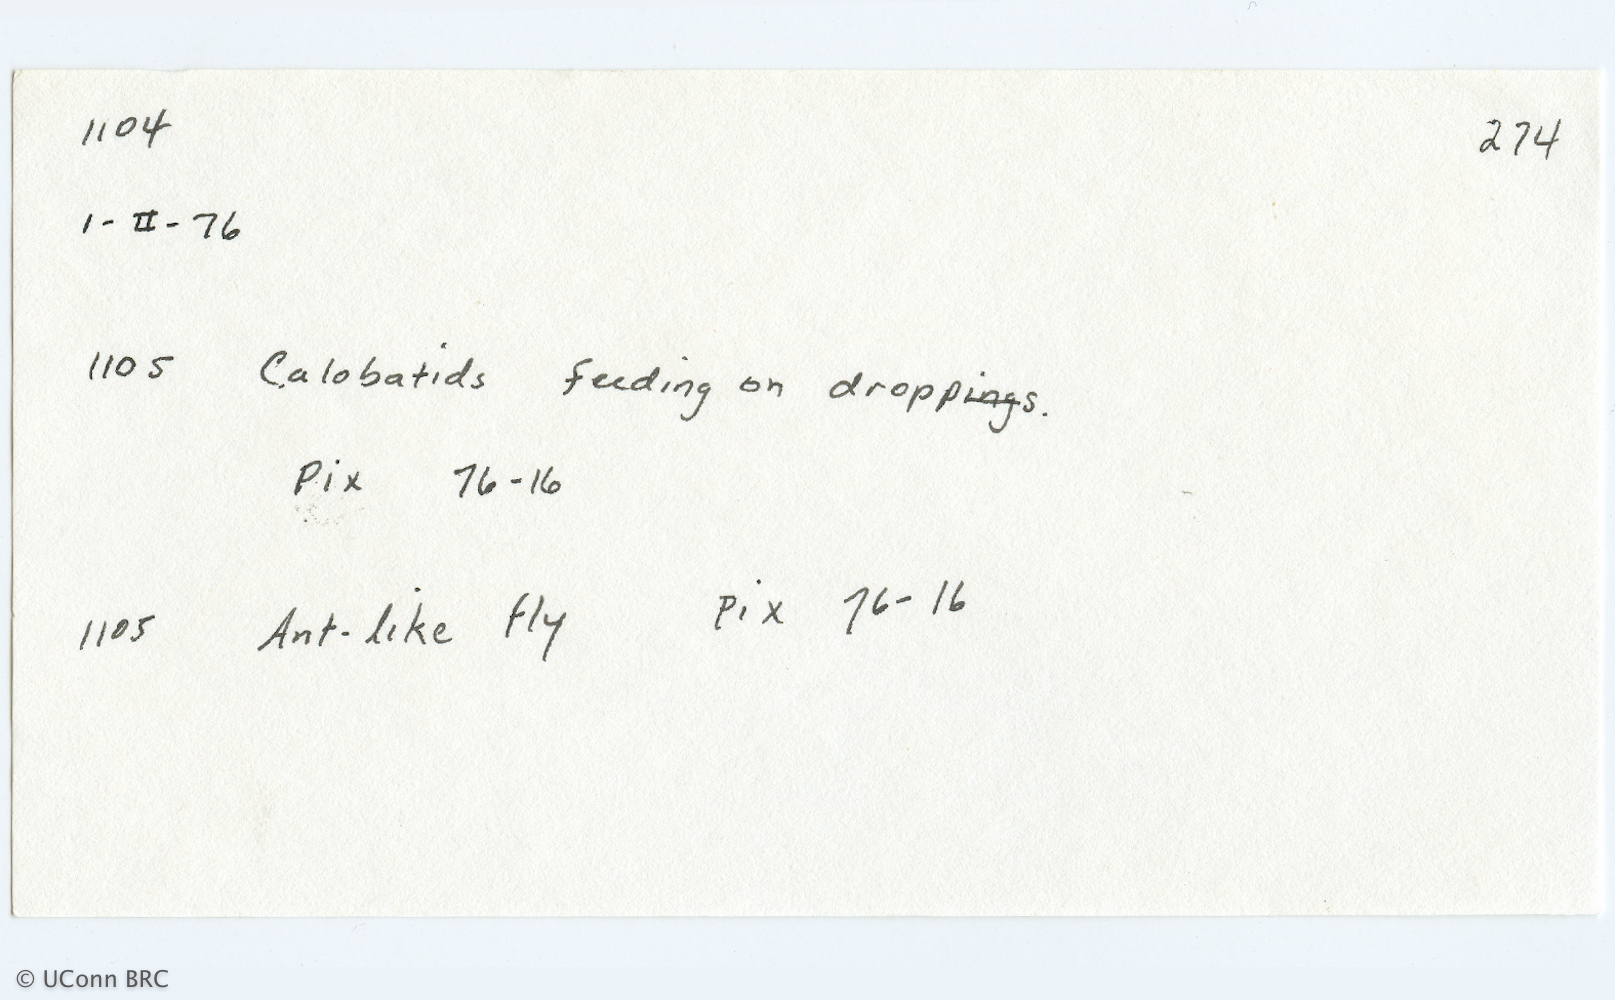 1104 274
1-II-76
1105 Calobatids feeding on droppings.
Pix 76-16
1105 Ant-like fly Pix 76-16
© UConn BRC